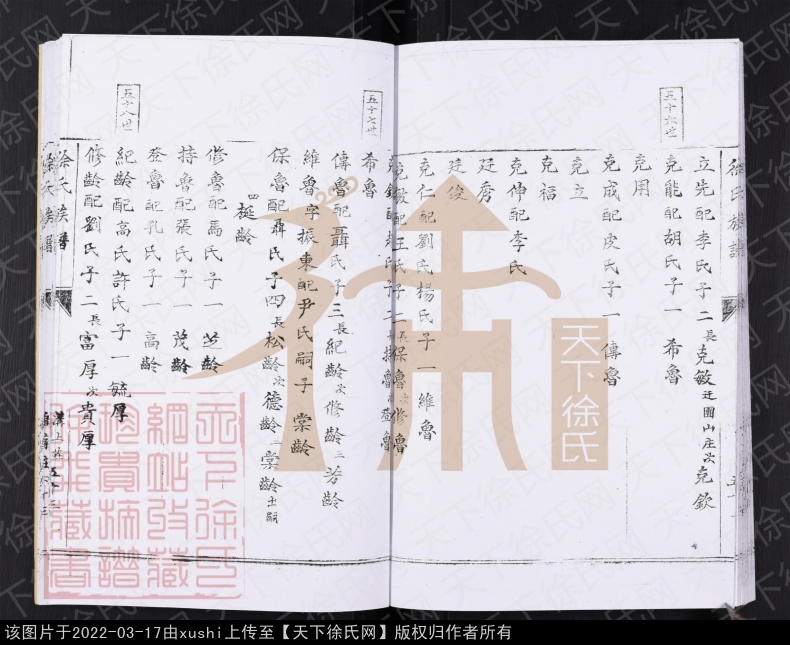 徐氏族譜
五十六世
立先配李氏子二長克敏迁圍山庄次克欽
克能配胡氏子一希魯
克用
克成配皮氏子一傳魯
克立
克福
克伸配李氏
廷秀
廷俊
克仁配劉氏楊氏子一維魯
五十七世
希魯
傳魯配聶氏子三長紀齡次修齡三芳齡
維魯字振東配尹氏嗣子棠齡
保魯配聶氏子四長松齡次德齡三棠齡出嗣
四椿齡
五十八世
修魯配馬氏子一芝齡
持魯配張氏子一茂齡
登魯配孔氏子一高齡
紀齡配高氏許氏子一毓厚
修齡配劉氏子二長富厚次貴厚
徐氏族譜
天下徐氏
天下徐氏網站收藏珍貴族譜
天下徐氏网
该图片于2022-03-17由xushi上传至【天下徐氏网】版权归作者所有